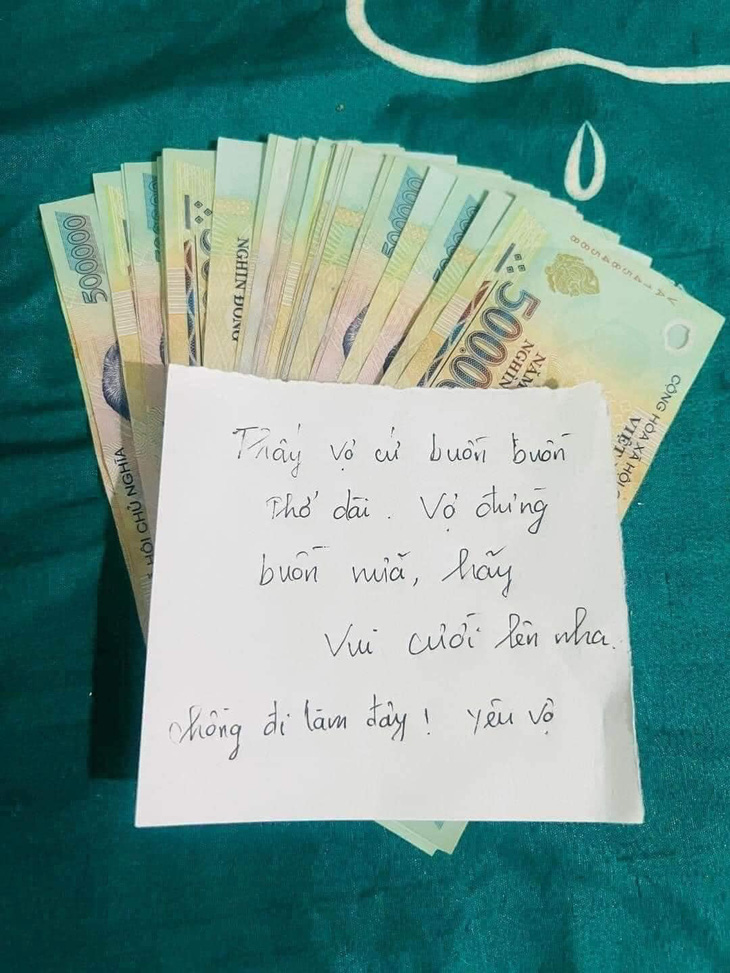 500000
NGHÌN ĐỒNG
500000
50000
NĂM
NGHÌN
CỘNG HÒA XÃ HỘI
VIỆT
HỘI CHỦ NGHĨA
Thấy vợ cứ buồn buồn
Thở dài. Vợ đừng
buồn nữa, hãy
Vui cười lên nha.
chồng đi làm đây! yêu vợ